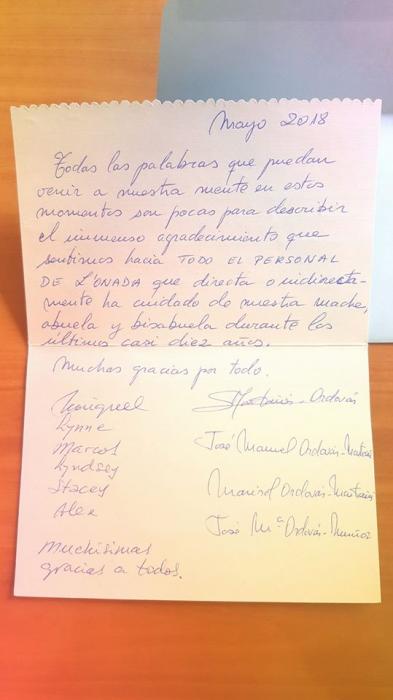 Mayo 2018
Todas las palabras que puedan
venir a nuestra mente en estos
momentos son pocas para describir
el inmenso agradecimiento que
sentimos hacia TODO EL PERSONAL
DE L'ONADA que directa o indirecta-
mente ha cuidado de nuestra madre,
abuela y bisabuela durante los
últimos casi diez años.
Muchas gracias por todo.
Lynne
Marcos
Lyndsey
Stacey
Alex
Ordovás
José Manuel Ordovás-
Marisol Ordovás-
José Mª Ordovás-Muñoz
Muchísimas
gracias a todos.